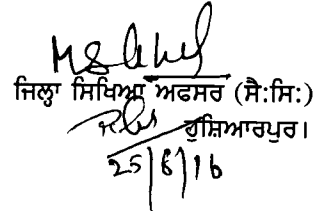 ਜਿਲ੍ਹਾ ਸਿਖਿਆ ਅਫਸਰ (ਸੈ:ਸਿ:)
ਹੁਸ਼ਿਆਰਪੁਰ।
25/8/16